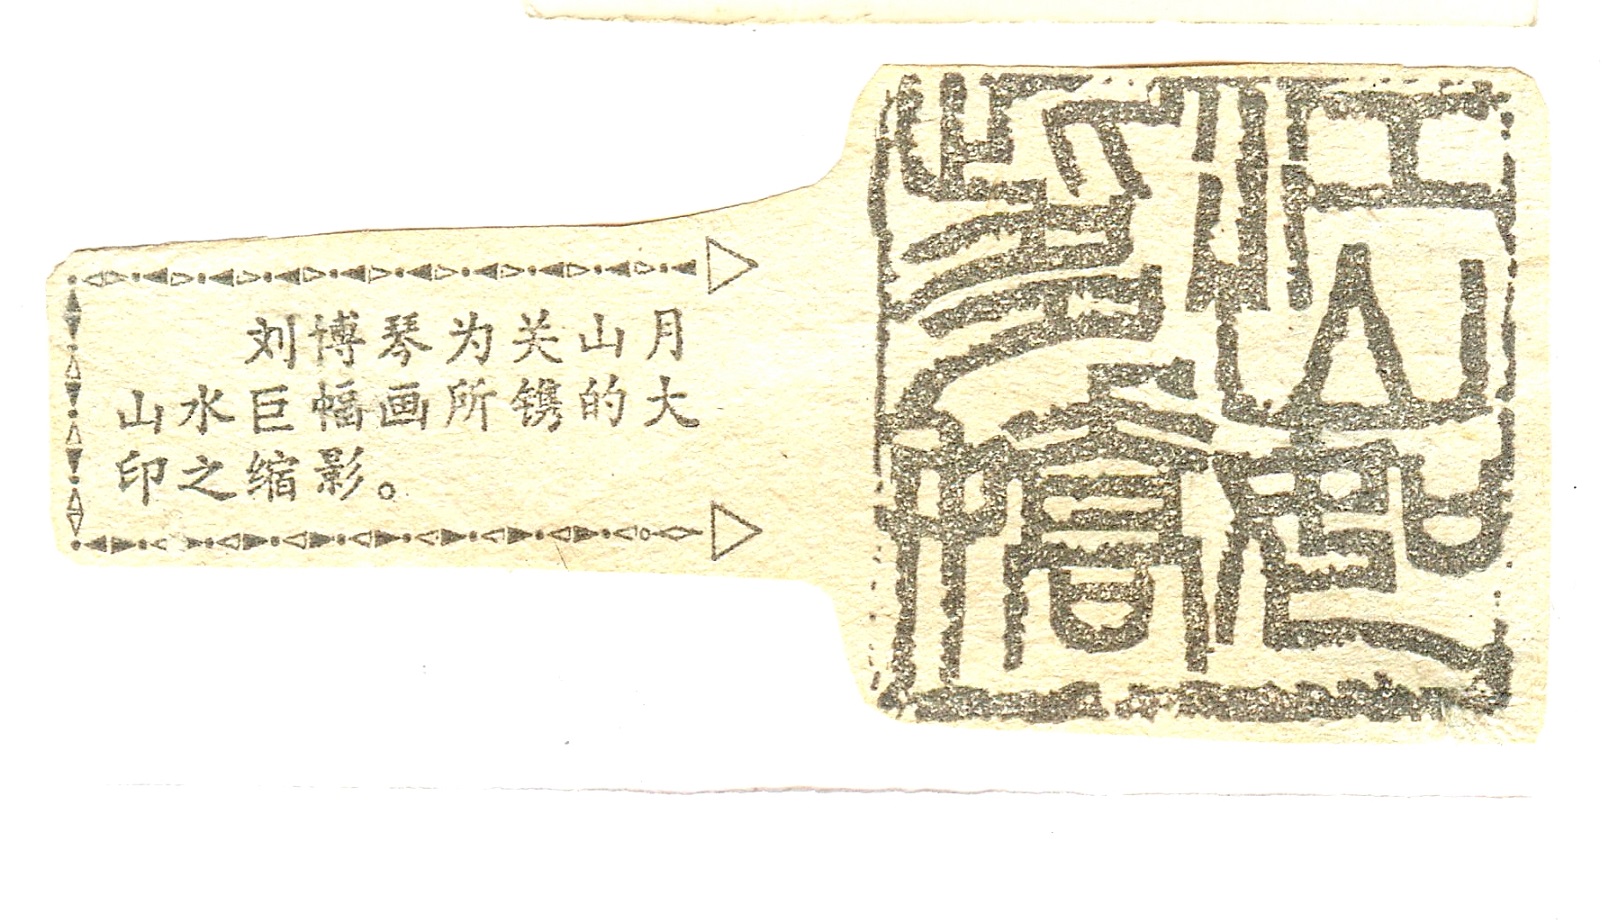 刘博琴为关山月
山水巨幅画所镌的大
印之缩影。
江山如
此多嬌